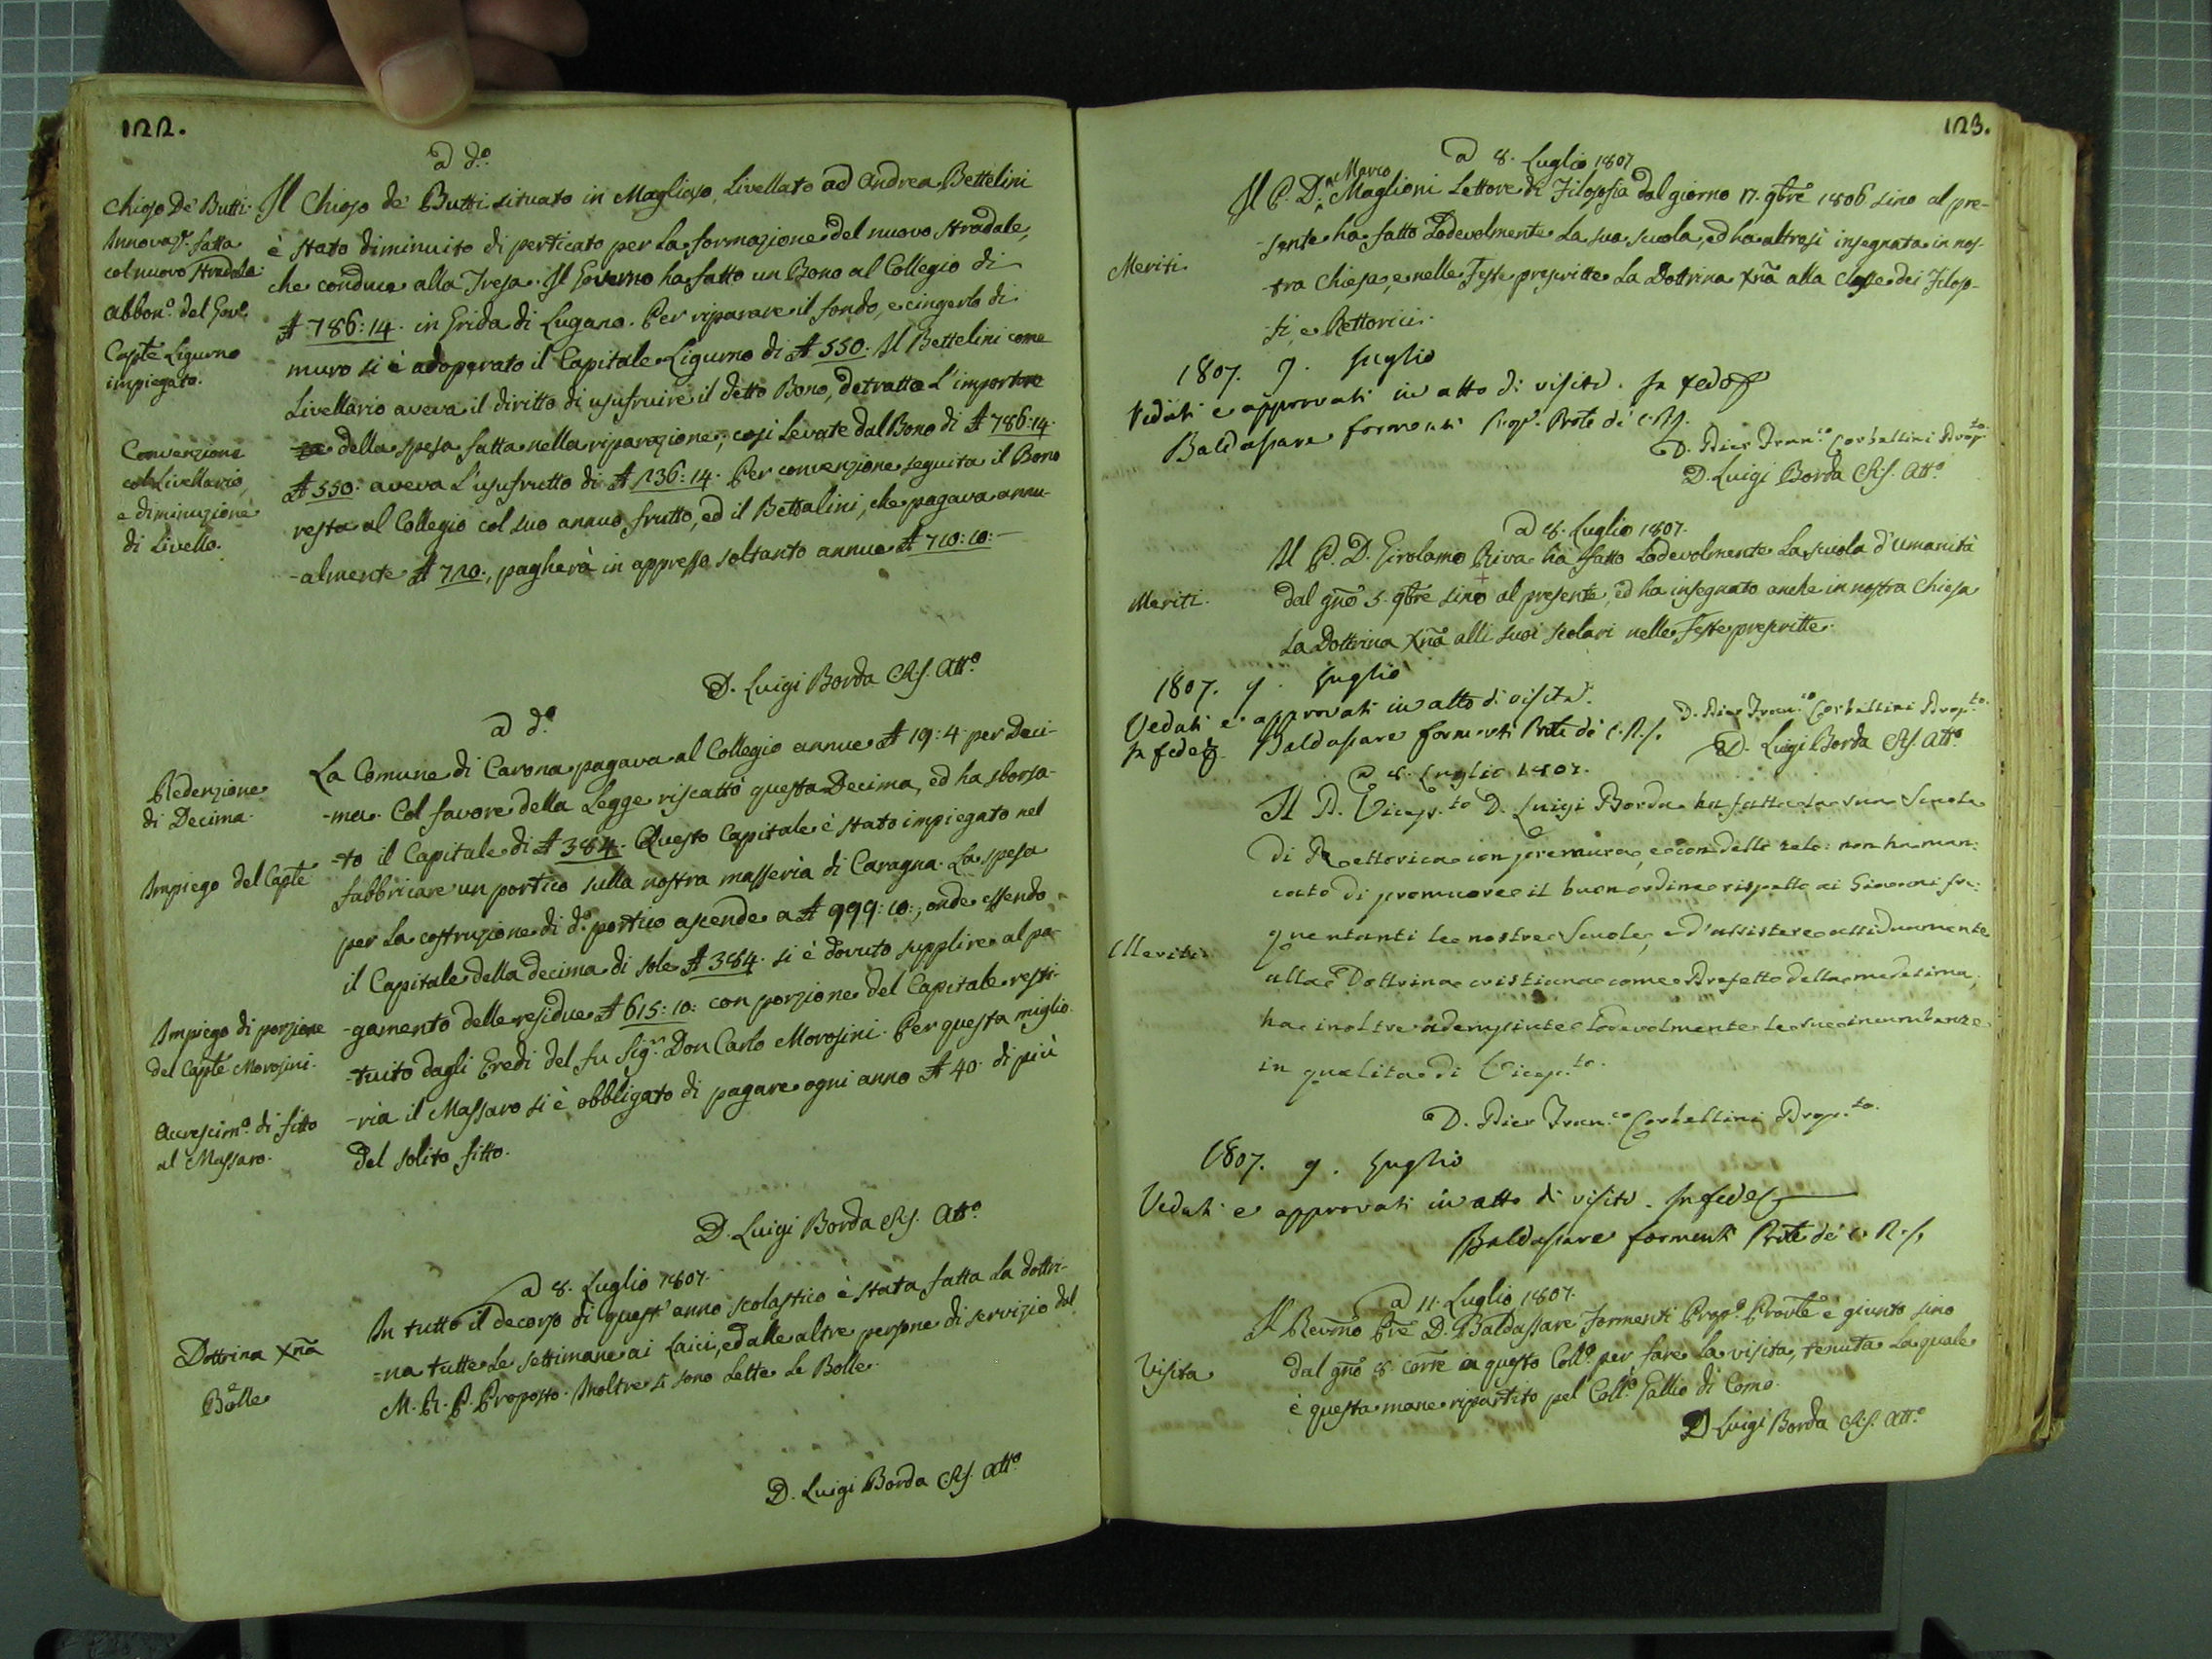 122.
a d.o
Chioso De' Butti.
Innovaz.e fatta
col nuovo stradale.
Abbon.o del Gov.o
Cap.te Ligurno
impiegato.
Il Chioso de' Butti situato in Magliaso, Livellato ad Andrea Bettelini
è stato diminuito di perticato per la formazione del nuovo stradale,
che conduce alla Tresa. Il Governo ha fatto un Bono al Collegio di
₤ 786:14. in Grida di Lugano. Per riparare il fondo, e cingerlo di
muro si è adoperato il Capitale Ligurno di ₤ 550. Il Bettelini come
Livellario aveva il diritto di usufruire il detto Bono, detratto l'importare
Convenzione
col Livellario,
e diminuzione
di Livello.
della spesa fatta nella riparazione; così levate dal Bono di ₤ 786:14.
₤ 550. aveva l'usufrutto di ₤ 236:14. Per convenzione seguita il Bono
resta al Collegio col suo annuo frutto, ed il Bettalini, che pagava annu-
-almente ₤ 720., pagherà in appresso soltanto annue ₤ 710:10:-
D. Luigi Borda CRS. Att.o
a d.o
Redenzione
di Decima.
La Comune di Carona pagava al Collegio annue ₤ 19:4 per Deci-
-ma. Col favore della Legge riscattò questa Decima, ed ha sborsa-
-to il Capitale di ₤ 384. Questo Capitale è stato impiegato nel
Impiego del Cap.te
fabbricare un portico sulla nostra masseria di Caragna. La spesa
per la costruzione di d.o portico ascende a ₤ 999:10:, onde essendo
il Capitale della decima di sole ₤ 384. si è dovuto supplire al pa-
Impiego di porzione
del Cap.te Morosini.
-gamento delle residue ₤ 615:10: con porzione del Capitale resti-
-tuito dagli Eredi del fu Sig.r Don Carlo Morosini. Per questa miglio-
Accrescim.o di fitto
al Massaro.
-ria il Massaro si è obbligato di pagare ogni anno ₤ 40. di più
del solito fitto.
D. Luigi Borda CRS. Att.o
a 8. Luglio 1807.
Dottrina Xña
Bolle
In tutto il decorso di quest'anno scolastico è stata fatta la dottri-
-na tutte le settimane ai Laici, ed alle altre persone di servizio dal
M. R. P. Proposto. Inoltre si sono lette le Bolle.
D. Luigi Borda CRS. Att.o
123.
a 8. Luglio 1807
Meriti.
Il P. D. Marco Maglioni Lettore di Filosofia dal giorno 17. 9bre 1806 sino al pre-
-sente ha fatto lodevolmente la sua scuola, ed ha altresì insegnata in nos-
-tra Chiesa, e nelle Feste prescritte la Dottrina Xña alla Classe dei Filoso-
-fi, e Rettorici.
1807. 9. Luglio
Veduti e approvati in atto di visita. In fede
Baldassare Formenti Prop. Prõle de' C.R.S.
D. Pier Fran.co Corbellini Prop.to
D. Luigi Borda CRS. Att.o
a 8. Luglio 1807.
Meriti.
Il P. D. Girolamo Riva ha fatto lodevolmente la scuola d'Umanità
dal gño 5. 9bre sino al presente, ed ha insegnato anche in nostra Chiesa
la Dottrina Xña alli suoi scolari nelle Feste prescritte.
1807. 9. Luglio
Veduti e approvati in atto di visita.
In fede Baldassare Formenti Prõle de' C.R.S.
D. Pier Fran.co Corbellini Prop.to
D. Luigi Borda CRS. Att.o
a 8. Luglio 1807.
Meriti.
Il P. Vicep.to D. Luigi Borda ha fatta la sua Scuola
di Rettorica con premura, e con dello zelo: non ha man-
cato di promuovere il buon ordine rispetto ai Giovani fre-
quentanti le nostre Scuole, e d'assistere assiduamente
alla Dottrina cristiana come Prefetto della medesima;
ha inoltre adempiute lodevolmente le sue incumbenze
in qualità di Vicep.to.
D. Pier Fran.co Corbellini Prop.to
1807. 9. Luglio
Veduti e approvati in atto di visita. In fede
Baldassare Formenti Prõle de' C.R.S.
a 11. Luglio 1807.
Visita
Il Revm̃o Pr̃e D. Baldassare Formenti Prep.o Prov̄le è giunto sino
dal gño 8. corr̃e in questo Coll.o per fare la visita, tenuta la quale
è questa mane ripartito pel Coll.o Gallio di Como.
D. Luigi Borda CRS. Att.o